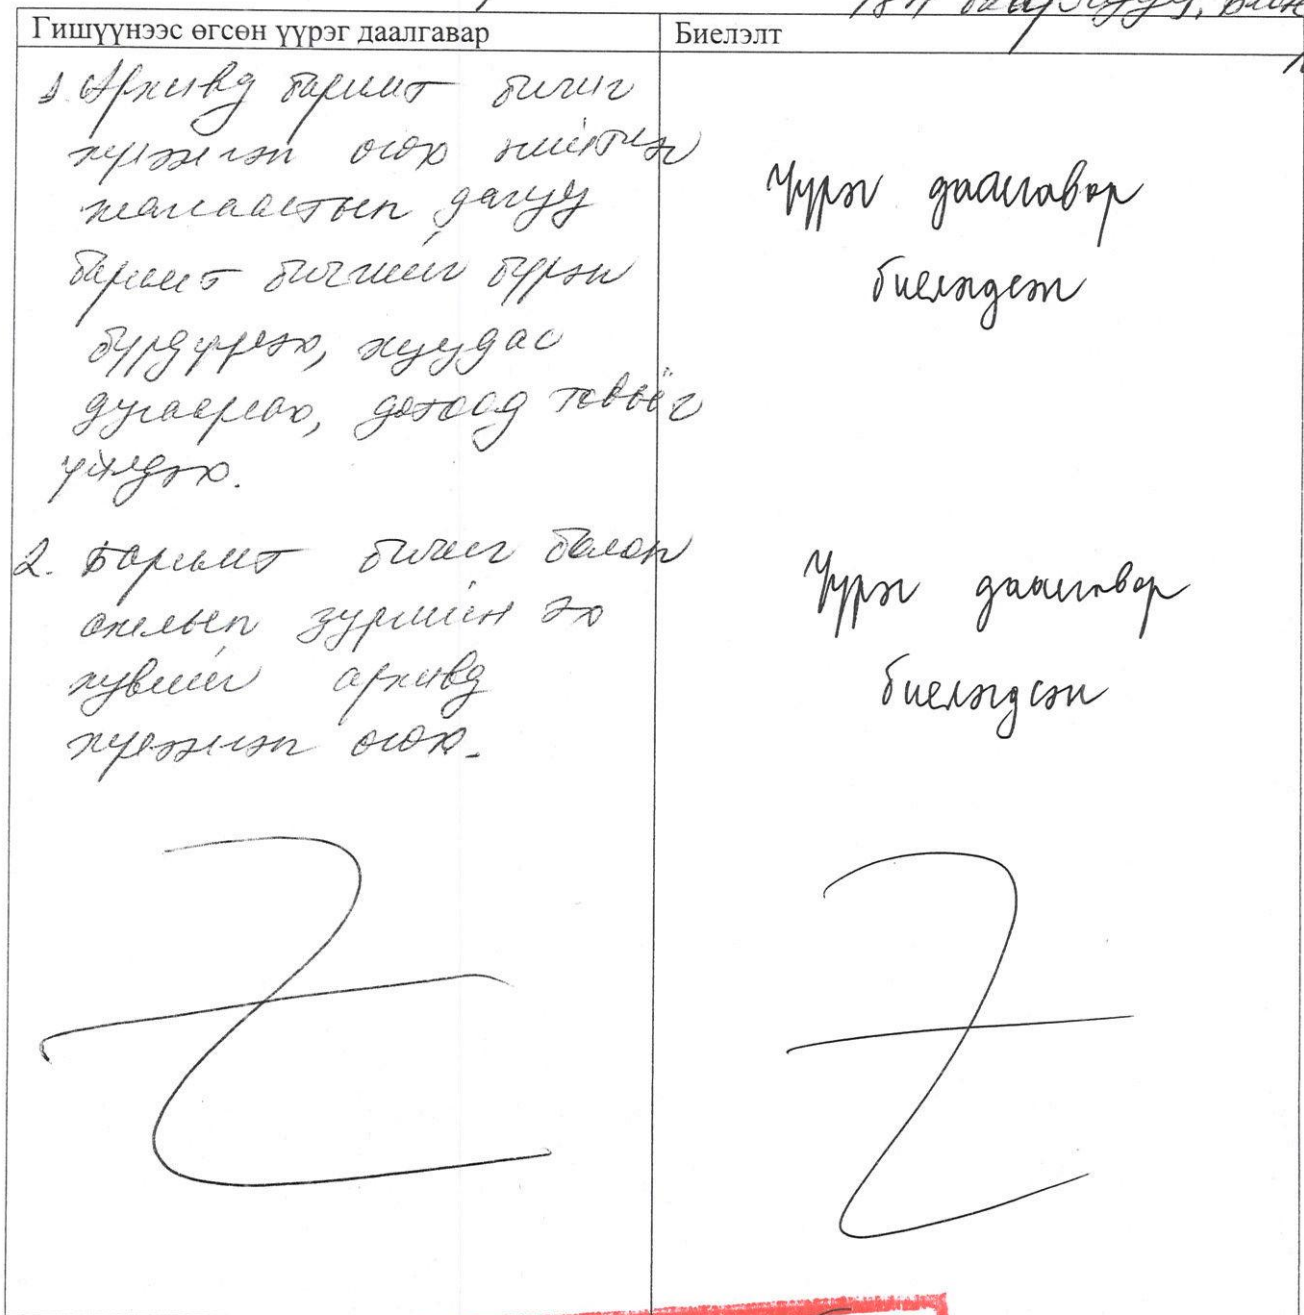 Гишүүнээс өгсөн үүрэг даалгавар
Биелэлт
1. Архивд баримт бичиг
хүлээлгэн өгөх нийтлэг
жагсаалтын дагуу
баримт бичгийг бүрэн
бүрдүүлэх, хуудас
дугаарлах, дотоод товъёг
үйлдэх.
Үүрэг даалгавар
биелэгдсэн
2. Баримт бичиг болон
ажлын зургийн эх
хувийг архивд
хүлээлгэн өгөх.
Үүрэг даалгавар
биелэгдсэн